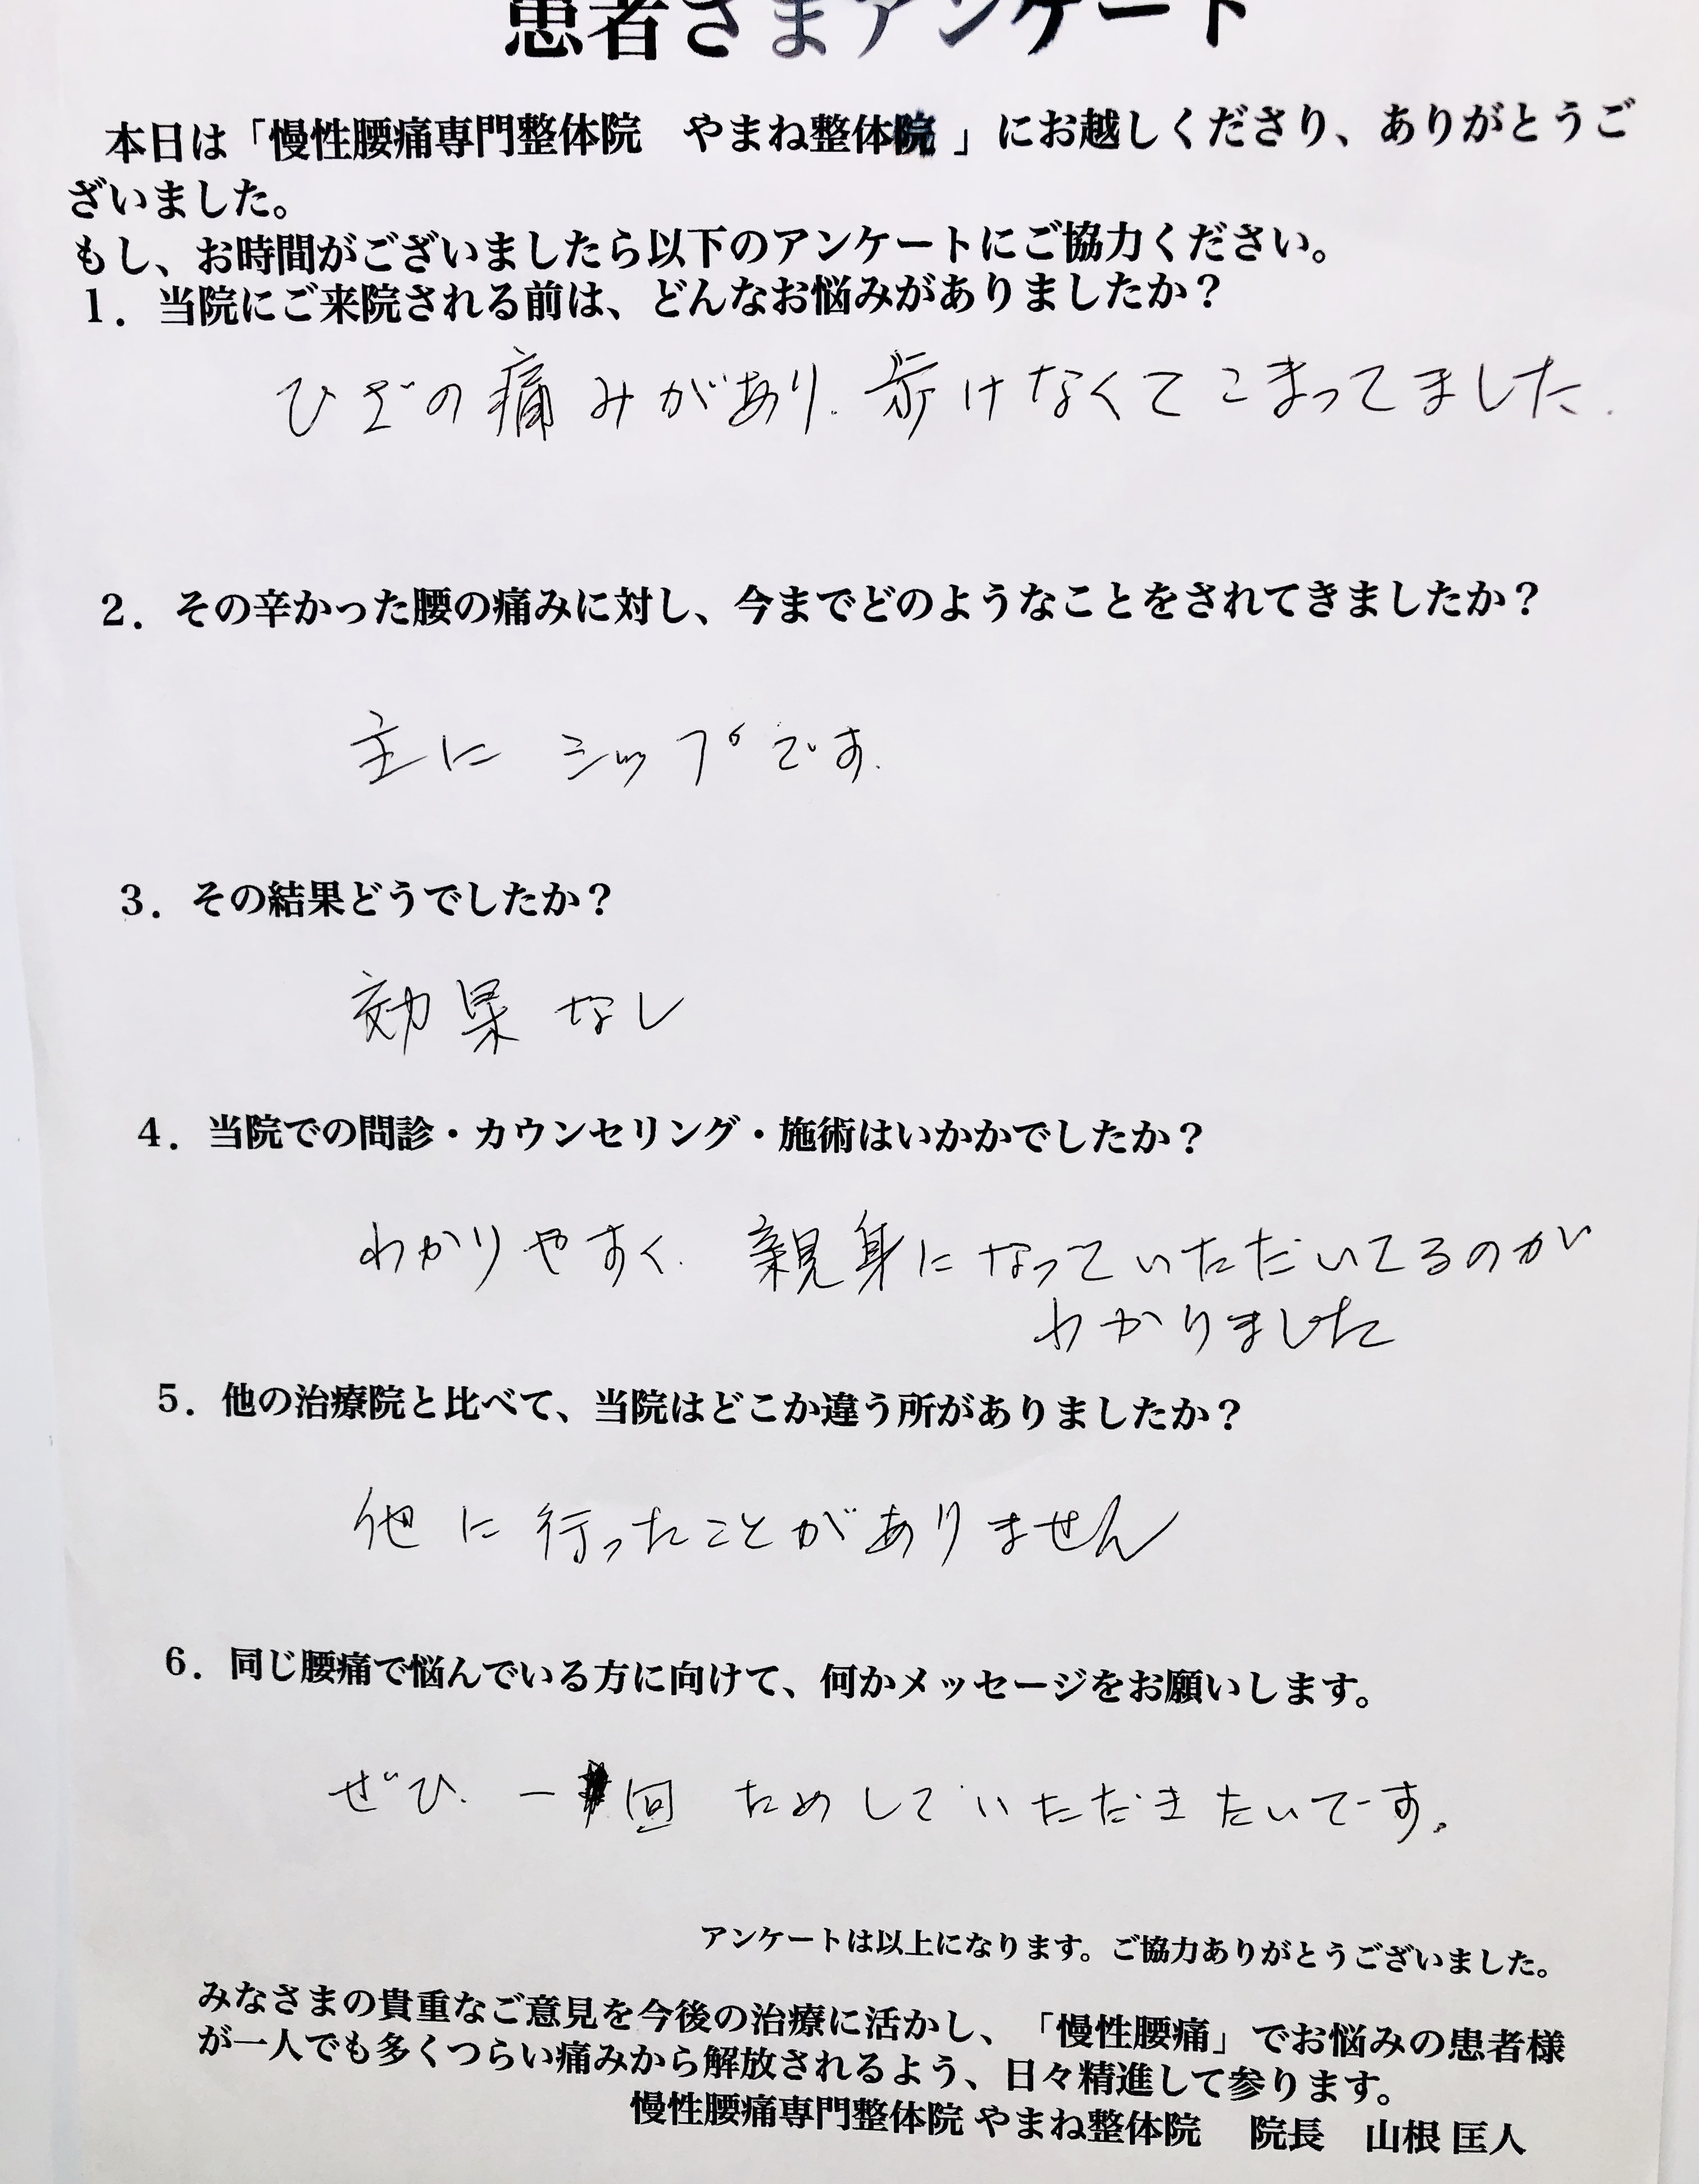 患者さまアンケート
本日は「慢性腰痛専門整体院　やまね整体院 」にお越しくださり、ありがとうご
ざいました。
もし、お時間がございましたら以下のアンケートにご協力ください。
１．当院にご来院される前は、どんなお悩みがありましたか？
ひざの痛みがあり、歩けなくてこまってました.
２．その辛かった腰の痛みに対し、今までどのようなことをされてきましたか？
主に シップです.
３．その結果どうでしたか？
効果なし
４．当院での問診・カウンセリング・施術はいかかでしたか？
わかりやすく、親身になっていただいてるのが
わかりました
５．他の治療院と比べて、当院はどこか違う所がありましたか？
他に行ったことがありません
６．同じ腰痛で悩んでいる方に向けて、何かメッセージをお願いします。
ぜひ、一回 ためしていただきたいです。
アンケートは以上になります。ご協力ありがとうございました。
みなさまの貴重なご意見を今後の治療に活かし、「慢性腰痛」でお悩みの患者様
が一人でも多くつらい痛みから解放されるよう、日々精進して参ります。
慢性腰痛専門整体院 やまね整体院　院長　山根 匡人